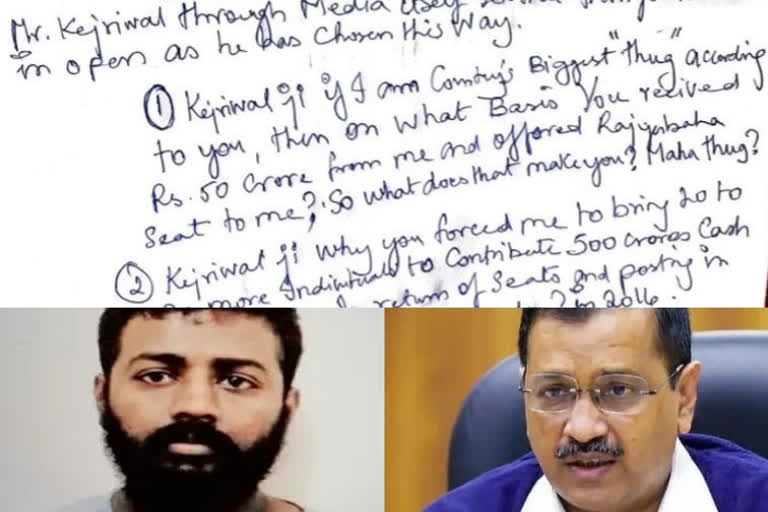 Mr. Kejriwal through Media itself
in open as he has Chosen this Way.
① Kejriwal ji if I am Country's Biggest "thug" according
to you, then on what Basis You recived
Rs. 50 Crore from me and offored Rajyabaha
Seat to me?. So what does that make you? Maha thug?
② Kejriwal ji why you forced me to bring 20 to
more Individuals to Contribute 500 Crores Cash
return of Seats and posting in
? in 2016.